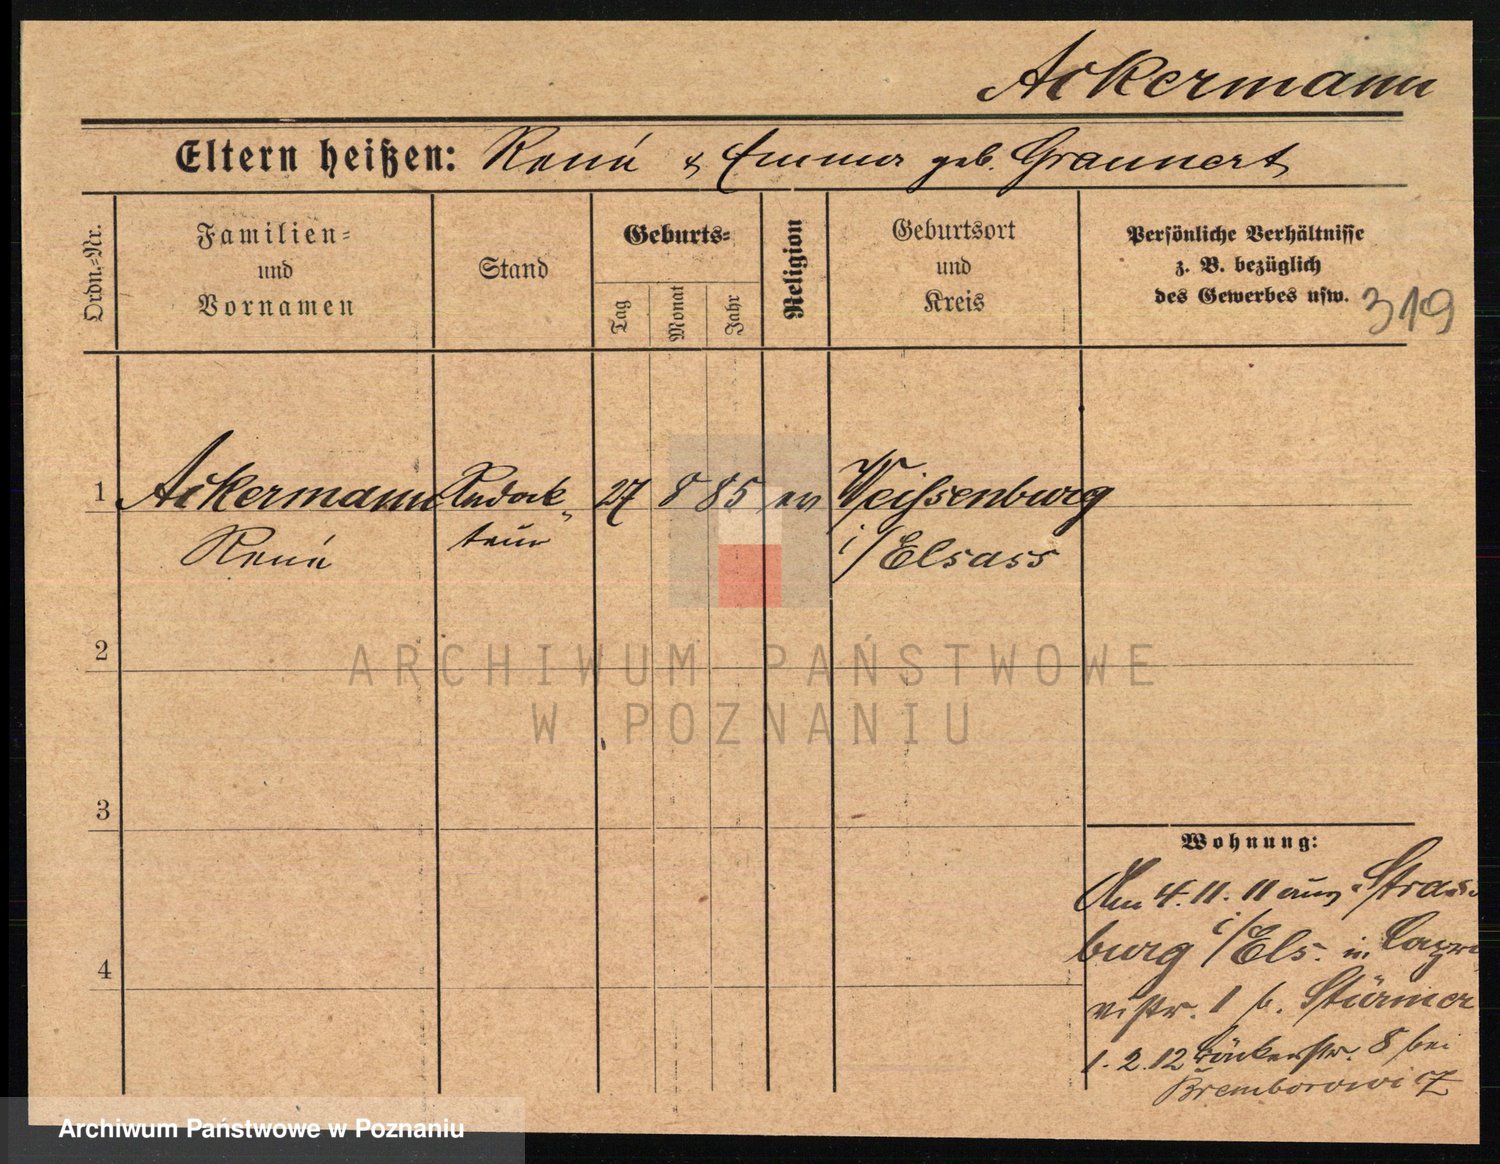 Ackermann
Eltern heißen: René & Emma geb. Graunert
Ordn.-Nr.
Familien-
und
Vornamen
Stand
Geburts-
Tag
Monat
Jahr
Religion
Geburtsort
und
Kreis
Persönliche Verhältnisse
z. B. bezüglich
des Gewerbes usw.
319
1 Ackermann Redak- 27 8 85 ev Weissenburg
René teur i/Elsass
2
3
4
Wohnung:
Am 4. 11. 11 aus Strass
burg i/Els. in Capri
vistr. 1 b. Stürmer
1. 2. 12 Bäckerstr. 8 bei
Bremborowicz
ARCHIWUM PAŃSTWOWE
W POZNANIU
Archiwum Państwowe w Poznaniu